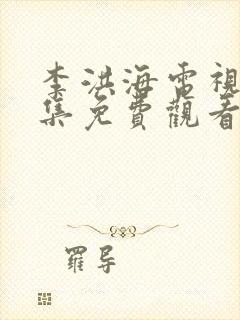 李洪海電視
集免費觀看
羅导